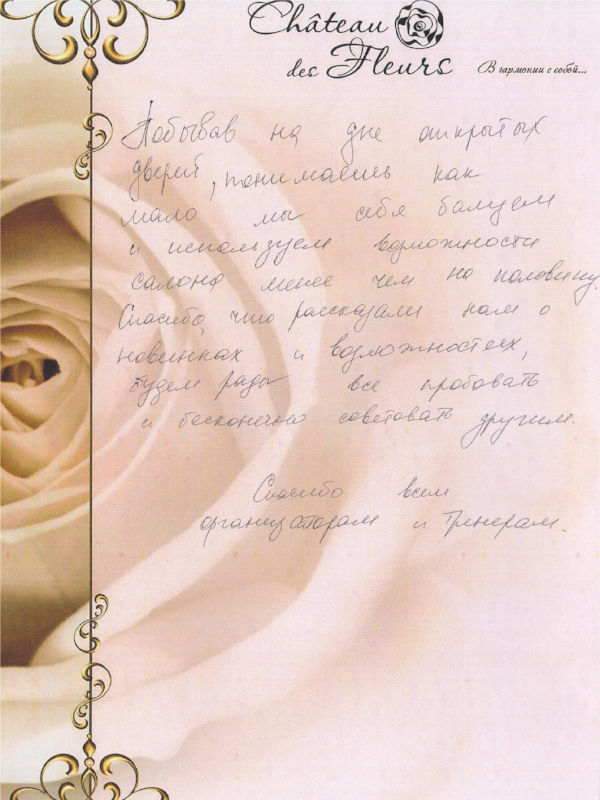 Château
des Fleurs
В гармонии с собой...
Побывав на дне открытых
дверей, понимаешь как
мало мы себя балуем
и используем возможности
салона менее чем на половину.
Спасибо, что рассказали нам о
новинках и возможностях,
будем рады все пробовать
и бесконечно советовать другим.
Спасибо всем
организаторам и тренерам.